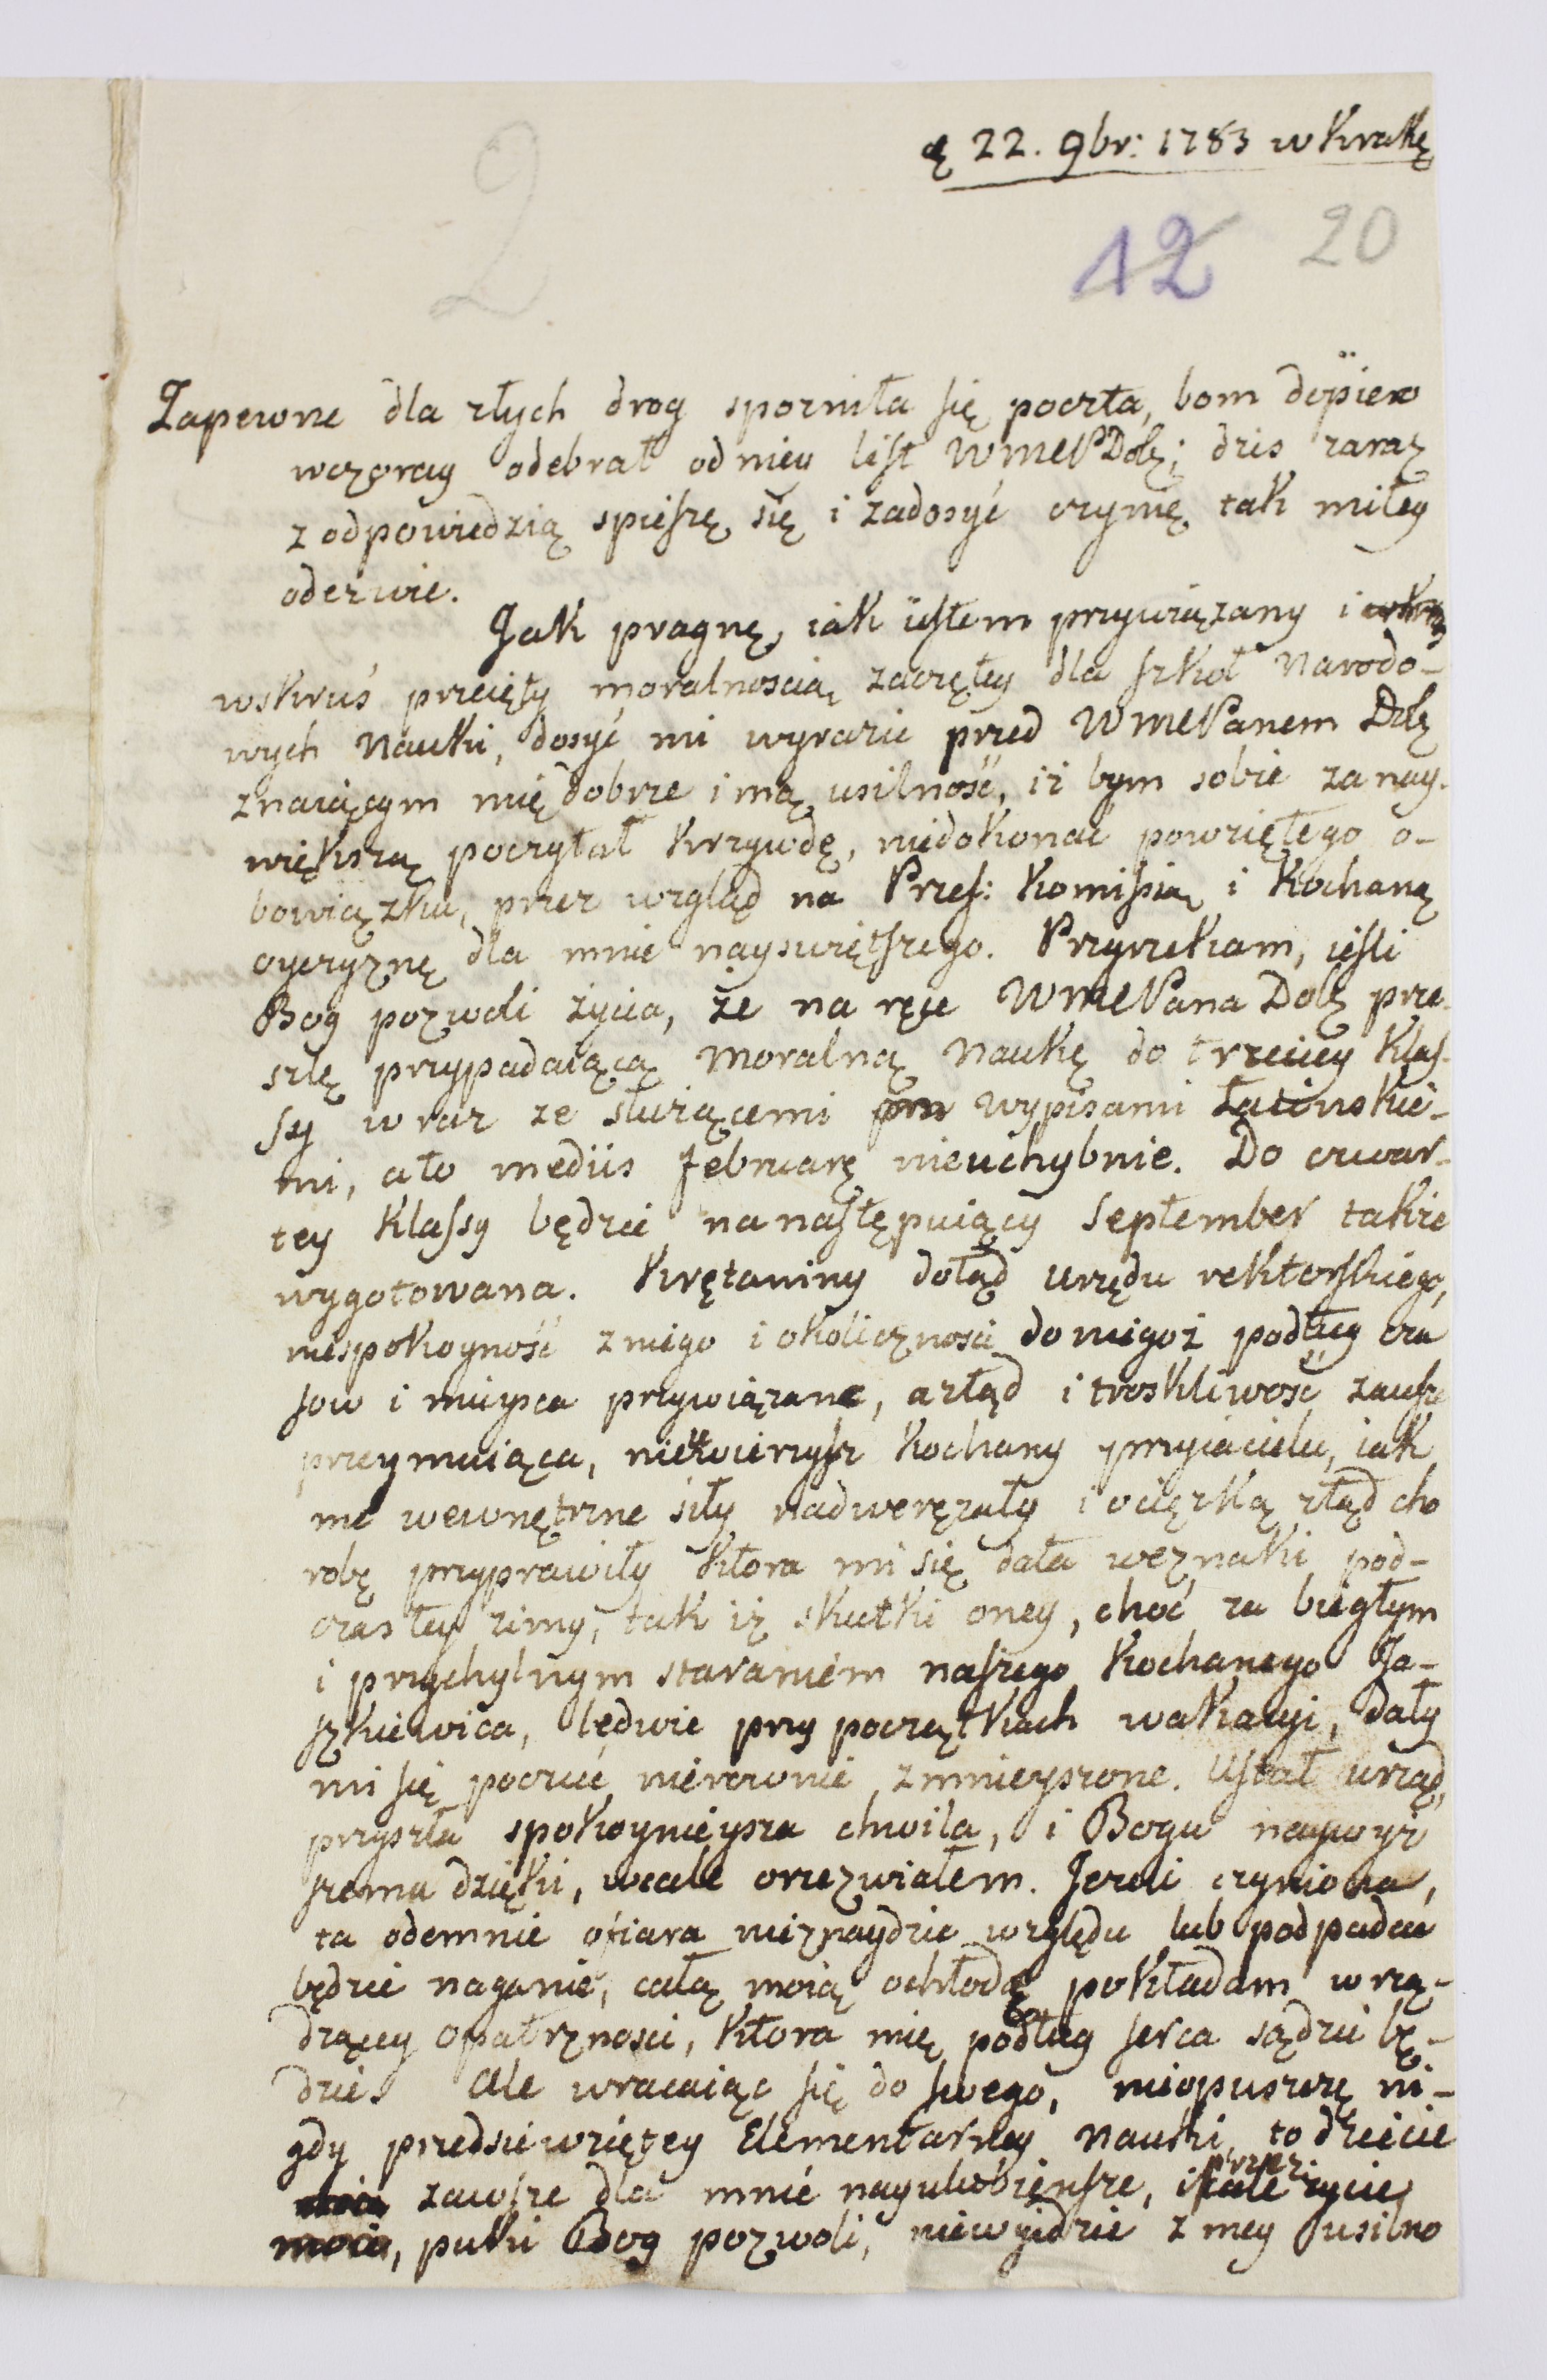 ę 22. 9br: 1783 w Krakę
2
12 20
Zapewne dla złych drog spozniła się poczta, bom dopiero
wczoray odebrał od niey list WMCPDobę; dzis zaraz
z odpowiedzią spieszę się i zadosyć czynię tak miłey
odezwie.
Jak pragnę, iak iestem przywiązany i
wskruś przeięty moralnoscią zaczętey dla szkoł Narodo-
wych Nauki, dosyć mi wyrazić przed WMCPanem Dobę
znaiącym mię dobrze i mą usilność, iż bym sobie za nay-
większą poczytał krzywdę, niedokonać powziętego o-
bowiązku, przez wzgląd na Przes: Komissią i Kochaną
oyczyznę dla mnie nayswiętszego. Przyrzekam, iesli
Bog pozwoli życia, że na ręce WMCPana Dobę prze-
szlę przypadaiącą moralną Naukę do trzeciey Klas-
sy wraz ze służącemi wypisami Łacinskie-
mi, a to mediis februarę nieuchybnie. Do czwar-
tey Klassy będzie na następuiący September także
wygotowana. Krętaniny dotąd urzędu rektorskiego,
niespokoyność z niego i okoliczności do niegoż podług cza
sow i mieysca przywiązane, a ztąd i troskliwość zawsze
przeymuiąca, niewierzysz Kochany przyiacielu, iak
me wewnętrzne siły nadwerężały i o ciężką ztąd cho
robę przyprawiły ktora mi się dała weznaki pod-
czas tey zimy, tak iż skutki oney, choć za biegłym
i przychylnym staraniem naszego Kochanego Ja-
szkiewica, ledwie przy początkach wakacyi, dały
mi się poczuć nierownie zmnieyszone. Ustał urząd,
przyszła spokoynieysza chwila, i Bogu naywyż
szemu dzięki, wcale orzezwiałem. Jezeli czyniona,
ta odemnie ofiara nieznaydzie względu lub podpadać
będzie naganie, całą moią ochłodę pokładam w rzą-
dzącey opatrznosci, ktora mię podług serca sądzić bę-
dzie. Ale wracaiąc się do swego, nieopuszczę ni-
gdy przedsiewziętey Elementarney nauki, to dziecie
zawsze dla mnie nayulubieńsze, i przez całe życie
moie, puki Bog pozwoli, niewyidzie z mey usilno